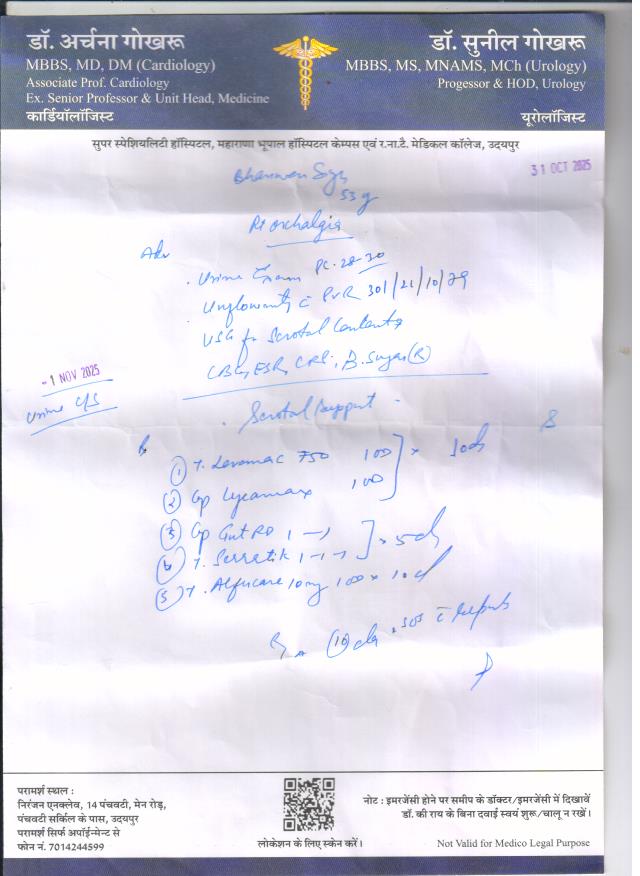 डॉ. अर्चना गोखरू
MBBS, MD, DM (Cardiology)
Associate Prof. Cardiology
Ex. Senior Professor & Unit Head, Medicine
कार्डियॉलॉजिस्ट
डॉ. सुनील गोखरू
MBBS, MS, MNAMS, MCh (Urology)
Progessor & HOD, Urology
यूरोलॉजिस्ट
सुपर स्पेशियलिटी हॉस्पिटल, महाराणा भूपाल हॉस्पिटल केम्पस एवं र.ना.टै. मेडिकल कॉलेज, उदयपुर
31 OCT 2025
53 y
Rt orchalgia
Adv
Urine Exam PC. 28-30
Uroflowmetry c PVR 301/21/10/29
USG for Scrotal Contents
CBC, ESR, CRP, B. Sugar (R)
-1 NOV 2025
Urine C/S
Scrotal Support
① T. Levomac 750 100 x 10d
② Cap Lycamax 100
③ Cap Gut RD 1-1
④ T. Serratik 1-1-1 x 5d
⑤ T. Alfucare 10mg 100 x 10d
10 d SOS c Reports
परामर्श स्थल :
निरंजन एनक्लेव, 14 पंचवटी, मेन रोड़,
पंचवटी सर्किल के पास, उदयपुर
परामर्श सिर्फ अपॉईन्मेन्ट से
फोन नं. 7014244599
लोकेशन के लिए स्केन करें।
नोट : इमरजेंसी होने पर समीप के डॉक्टर/इमरजेंसी में दिखावें
डॉ. की राय के बिना दवाई स्वयं शुरू/चालू न रखें।
Not Valid for Medico Legal Purpose